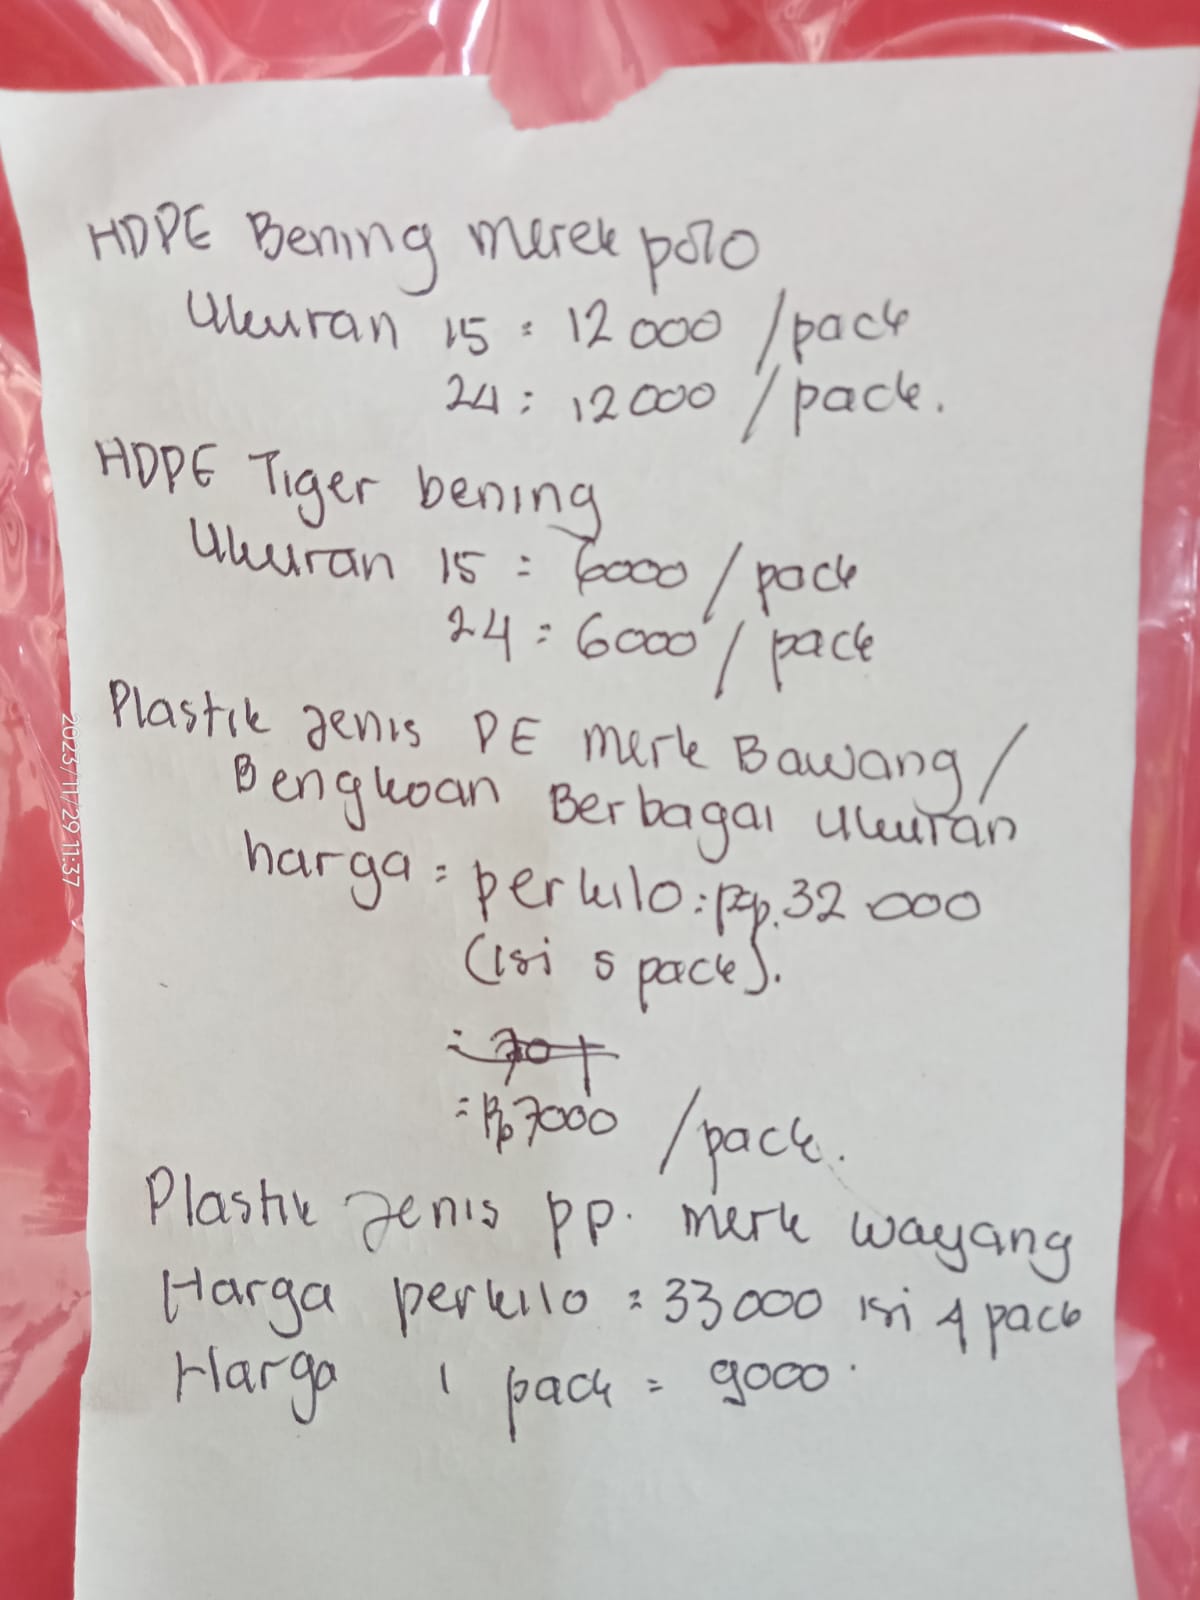 HDPE Bening merek polo
Ukuran 15 = 12 000 /pack
24 : 12000 /pack.
HDPE Tiger bening
Ukuran 15 = 6000 / pack
24 = 6000 / pack
Plastik Jenis PE merk Bawang /
Bengkoan Berbagai Ukuran
harga = perkilo : Rp. 32 000
(isi 5 pack).
= Rp 7000 /pack.
Plastik Jenis pp. merk wayang
Harga perkilo = 33 000 isi 4 pack
Harga 1 pack = 9000
2023/11/29 11:37